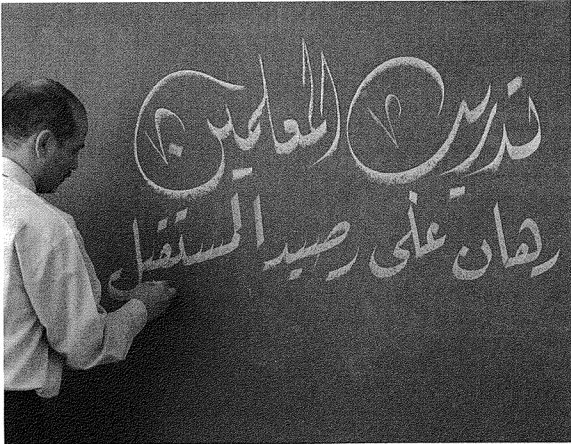 تدريب المعلمين
رهان على رصيد المستقبل